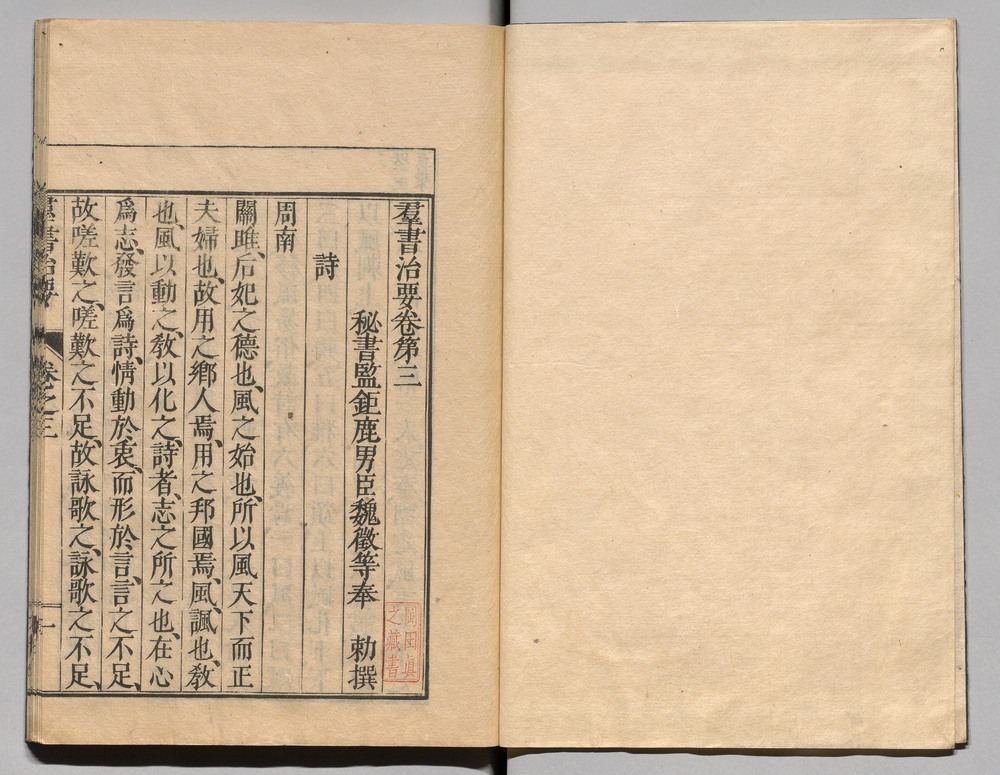 羣書治要卷第三
秘書監鉅鹿男臣魏徵等奉　勑撰
詩
周南
關雎、后妃之德也、風之始也、所以風天下而正
夫婦也、故用之鄉人焉、用之邦國焉、風、諷也、敎
也、風以動之、敎以化之、詩者、志之所之也、在心
爲志、發言爲詩、情動於衷、而形於言、言之不足、
故嗟歎之、嗟歎之不足、故詠歌之、詠歌之不足、
羣書治要
卷之三
一
岡田眞
之藏書